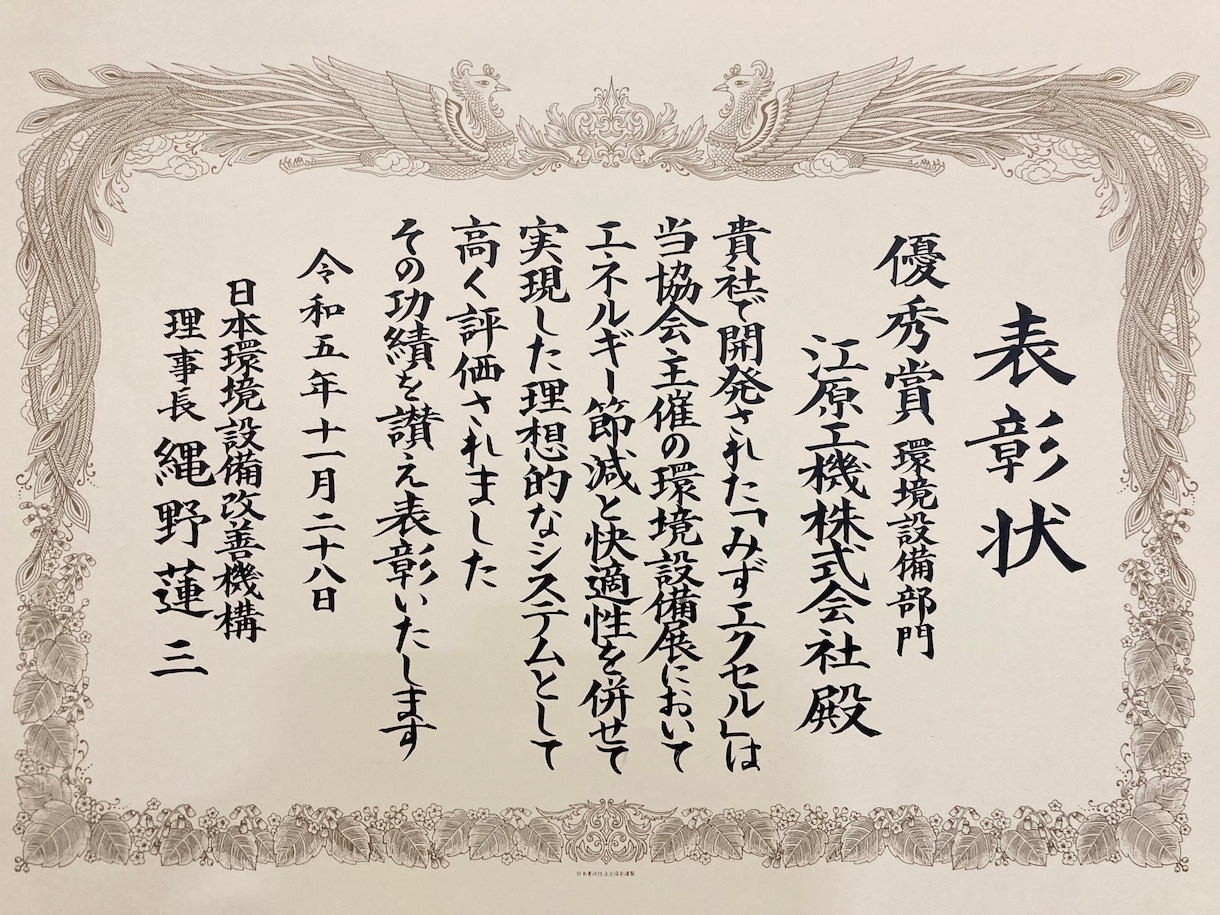 表彰状
優秀賞 環境設備部門
江原工機株式会社殿
貴社で開発された「みずエクセル」は
当協会主催の環境設備展において
エネルギー節減と快適性を併せて
実現した理想的なシステムとして
高く評価されました
その功績を讃え表彰いたします
令和五年十一月二十八日
日本環境設備改善機構
理事長 縄野蓮三